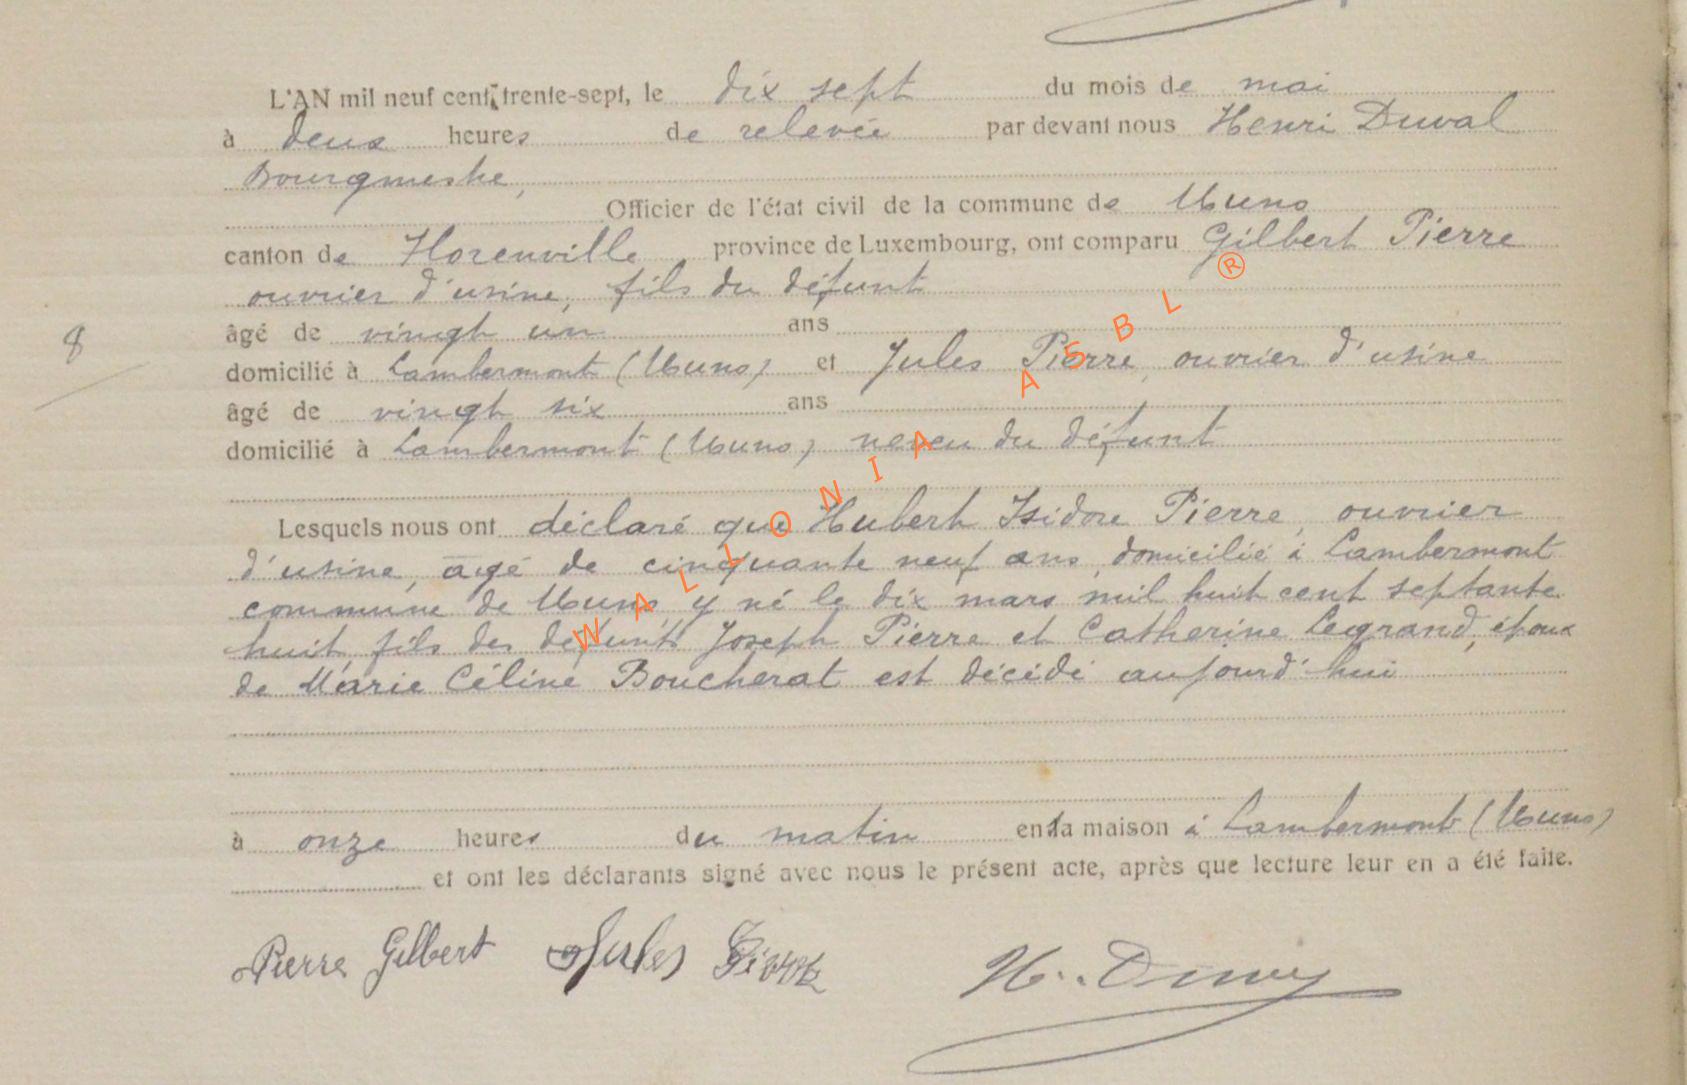 L'AN mil neuf cent trente-sept, le dix sept du mois de mai
à deux heures de relevée par devant nous Henri Duval
Bourgmestre,
Officier de l'état civil de la commune de Muno
canton de Florenville province de Luxembourg, ont comparu Gilbert Pierre
ouvrier d'usine, fils du défunt
âgé de vingt un ans
8
domicilié à Lambermont (Muno) et Jules Pierre, ouvrier d'usine
âgé de vingt six ans
domicilié à Lambermont (Muno) neveu du défunt
Lesquels nous ont déclaré que Hubert Isidore Pierre, ouvrier
d'usine, âgé de cinquante neuf ans, domicilié à Lambermont
commune de Muno, y né le dix mars mil huit cent septante
huit, fils des défunts Joseph Pierre et Catherine Legrand, époux
de Marie Céline Boucherat est décédé aujourd'hui
à onze heures du matin en sa maison à Lambermont (Muno)
et ont les déclarants signé avec nous le présent acte, après que lecture leur en a été faite.
Pierre Gilbert Jules Pierre H. Duval
WALLONIA ASBL ®